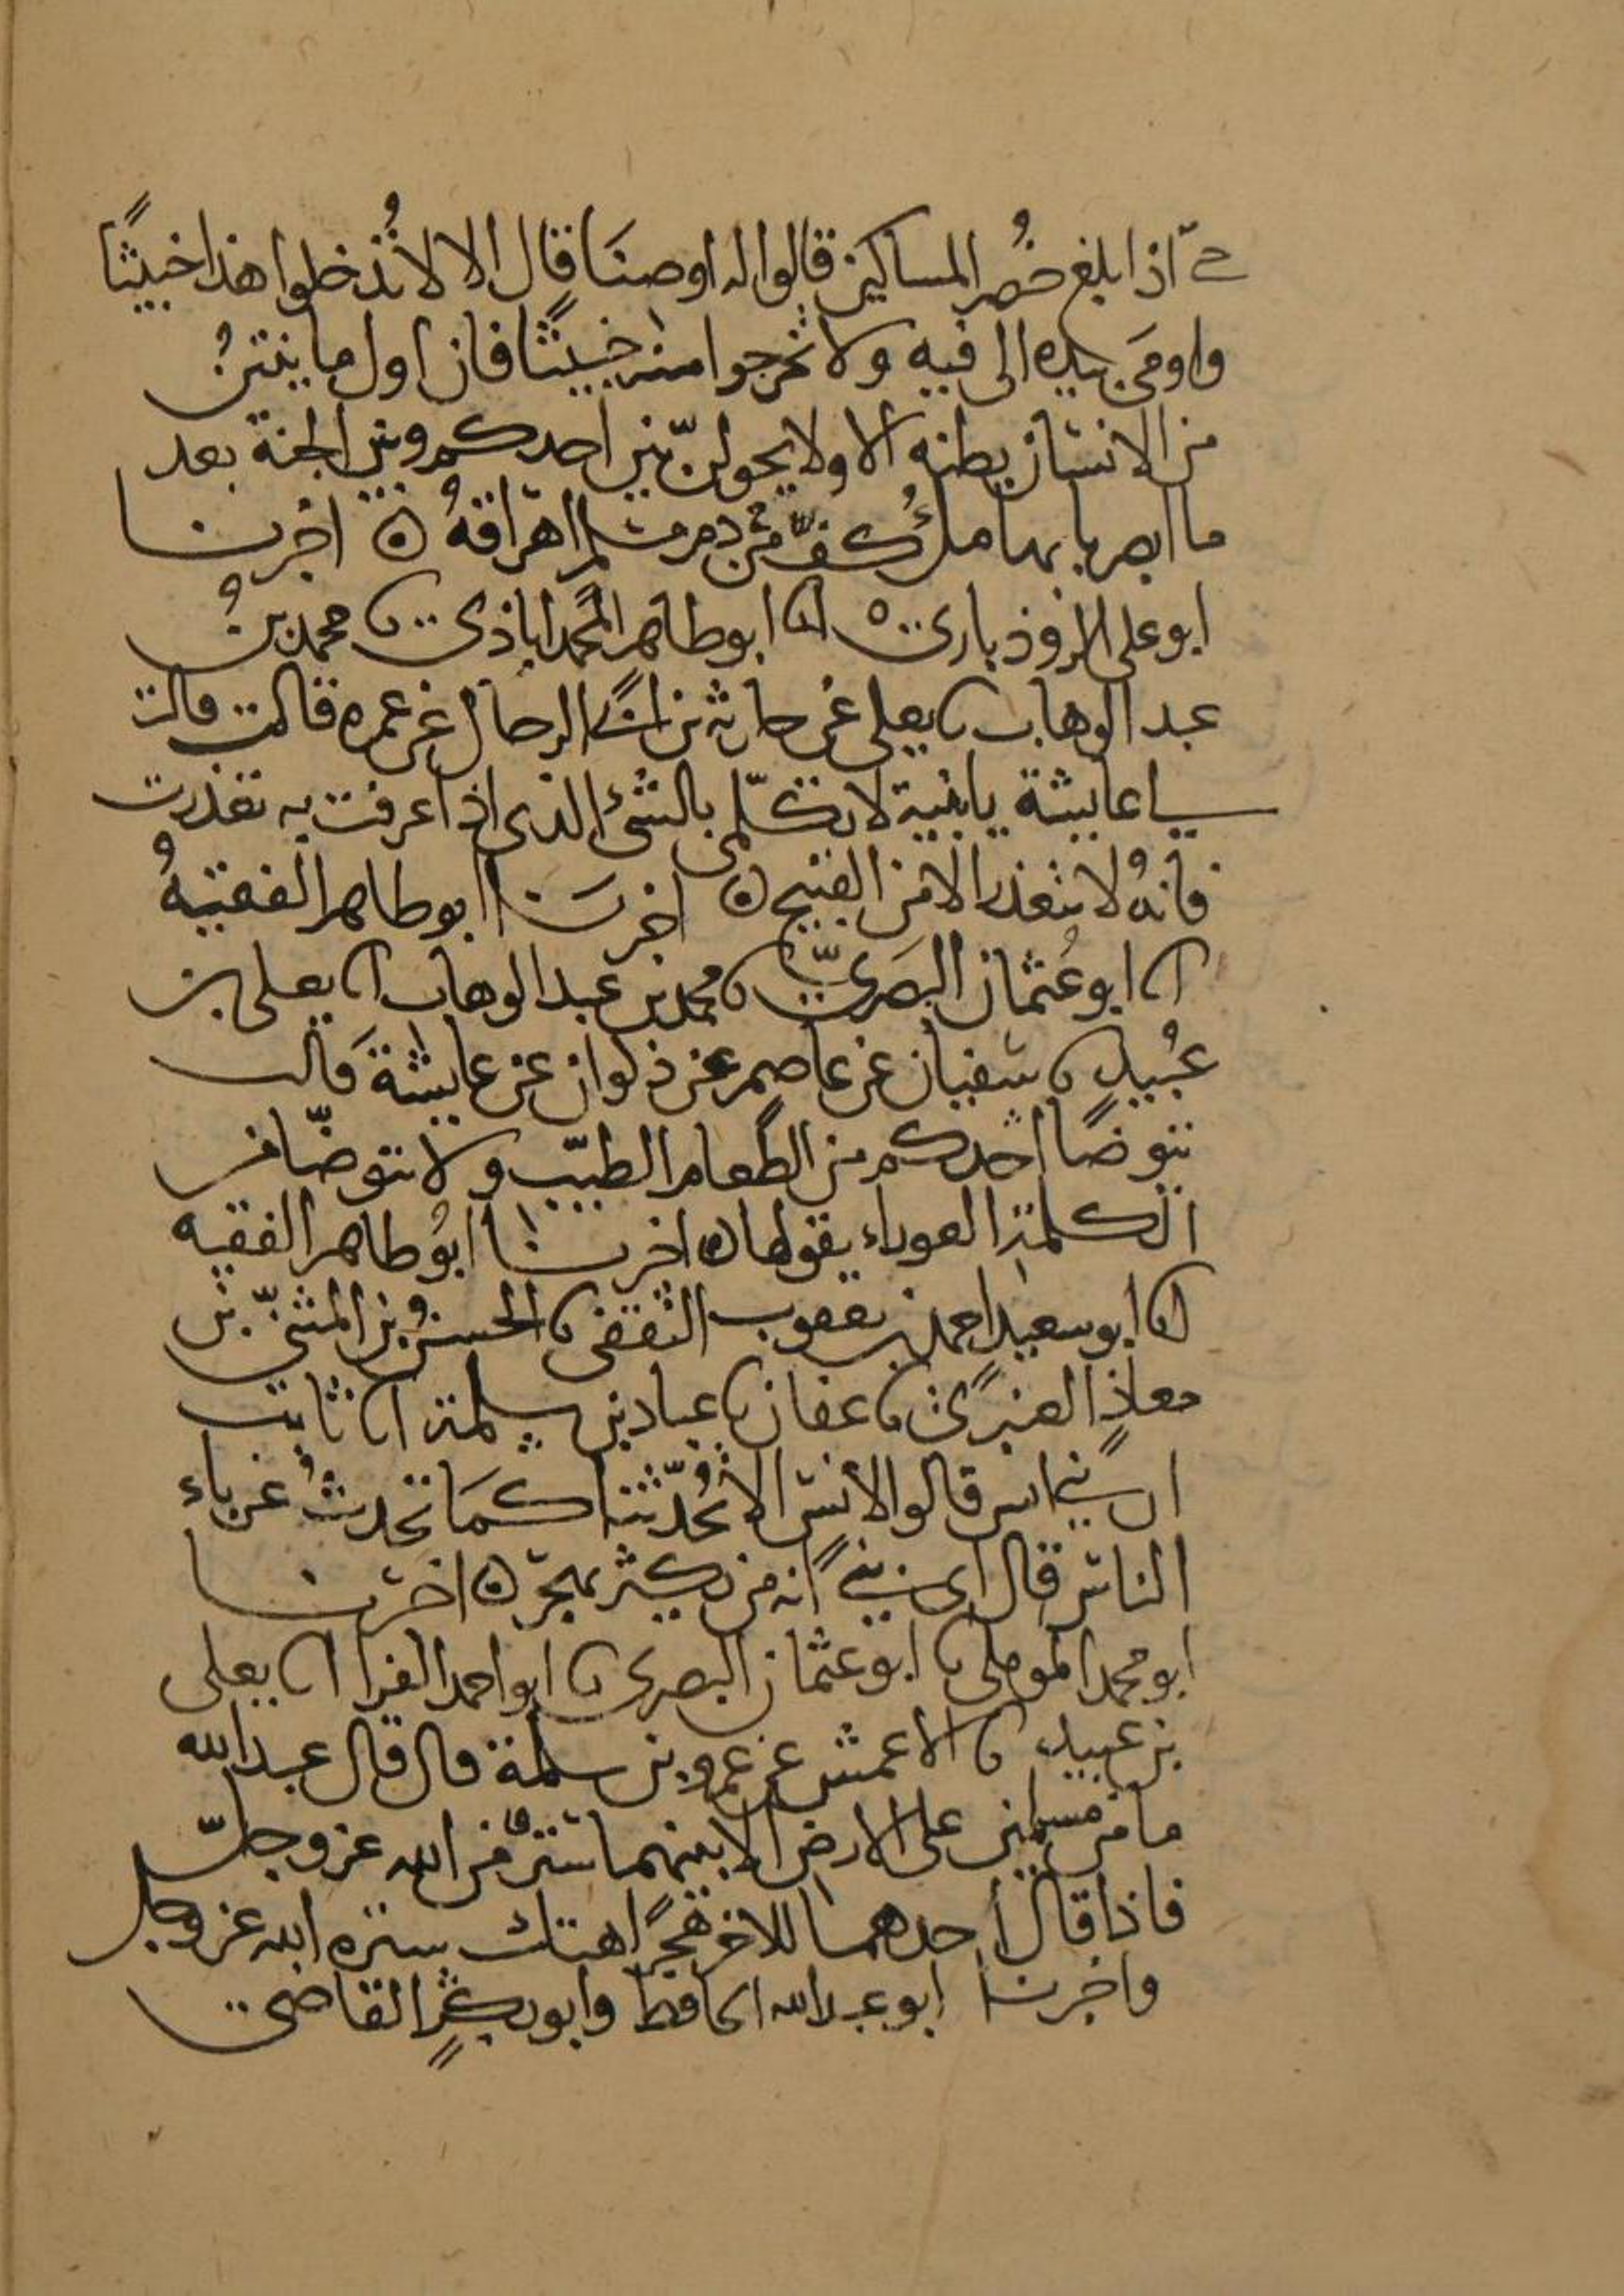 حتى اذا بلغ خُصر المساكين قالوا له اوصنَا قال الا لا تُدخلوا هذا خبيثًا
واومَى بيده الى فيه ولا تخرجوا منه خبيثًا فان اول ما ينتنُ
من الانسان بطنه الا ولا يحولنّ بين احدكم وبين الجنة بعد
ما ابصر بابها ملؤُ كفٍّ من دم مسلم اهراقهُ ه اخبرنا
ابو على الروذبارى انا ابو طاهر المحمداباذى نا محمد بنُ
عبد الوهاب نا يعلى عن حارثه بن ابى الرحال عن عمره قالت قالت
لى عايشة يا بنية لا تكلّمى بالشئ الذى اذا عرفت به تعذرت
فانهُ لا يتعذر الا من القبيح ه اخبرنَا ابو طاهر الفقيهُ
انا ابو عُثمان البصَرىّ نا محمد بن عبد الوهاب انا يعلى بن
عُبيد نا سفيان عن عاصم عن ذكوان عن عايشة قالت
يتوضا احدكم من الطعام الطيّب ولا يتوضّا من
الكلمة العوراء يقولها ه اخبرنا ابوُ طاهر الفقيه
انا ابو سعيد احمد بن يعقوب الثقفى نا الحسنُ بن المثنىّ بن
معاذ العنبرىُّ نا عفان نا عباد بن سلمة انا ثابت
ان بنى انس قالوا لانس الا تُحدّثُنا كمَا تحدثُ غرباء
الناس قال اى بنىَّ انه من يكثر يهجر ه اخبرنا
ابو محمد الموملى نا ابو عثمان البصرى نا ابو احمد الفرا انا يعلى
بن عبيد نا الاعمش عن عمرو بن سلمة قال قال عبد الله
ما من مسلمين على الارض الا بينهما سترٌ من الله عز وجلّ
فاذا قال احدهما للاخر هُجرًا هتك ستره الله عز وجل
واخبرنا ابو عبد الله الحافظ وابو بكرٍ القاضى